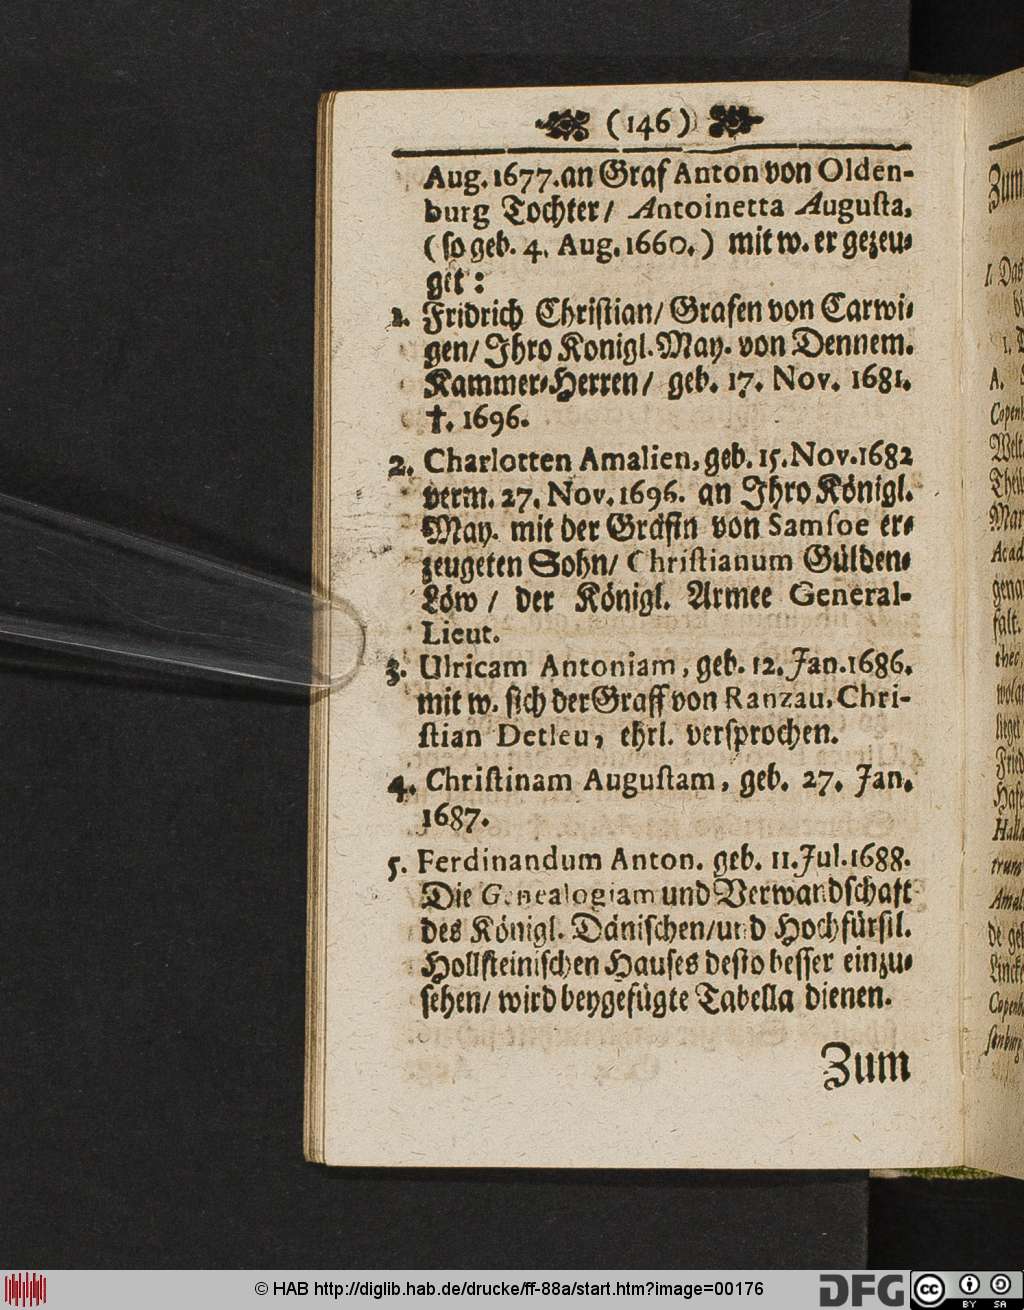 (146)
Aug. 1677. an Graf Anton von Olden-
burg Tochter/ Antoinetta Augusta,
(so geb. 4. Aug. 1660.) mit w. er gezeu-
get:
1. Fridrich Christian/ Grafen von Carwi-
gen/ Ihro Konigl. May. von Dennem.
Kammer-Herren/ geb. 17. Nov. 1681.
†. 1696.
2. Charlotten Amalien, geb. 15. Nov. 1682
verm. 27. Nov. 1696. an Ihro Königl.
May. mit der Gräfin von Samsoe er-
zeugeten Sohn/ Christianum Gülden-
Löw / der Königl. Armee General-
Lieut.
3. Ulricam Antoniam, geb. 12. Jan. 1686.
mit w. sich der Graff von Ranzau, Chri-
stian Detleu, ehrl. versprochen.
4. Christinam Augustam, geb. 27. Jan.
1687.
5. Ferdinandum Anton. geb. 11. Jul. 1688.
Die Genealogiam und Verwandschaft
des Königl. Dänischen/und Hochfürstl.
Hollsteinischen Hauses desto besser einzu-
sehen/ wird beygefügte Tabella dienen.
Zum
Zum
I. Das
A.
Copenh
Welt
Theil
Mar
Acad
gena
falt.
theo,
wolan
lieget
Fried
Hafe
Halla
trum
Amal
de gel
Lincke
Copenh
© HAB http://diglib.hab.de/drucke/ff-88a/start.htm?image=00176
DFG
cc
BY SA